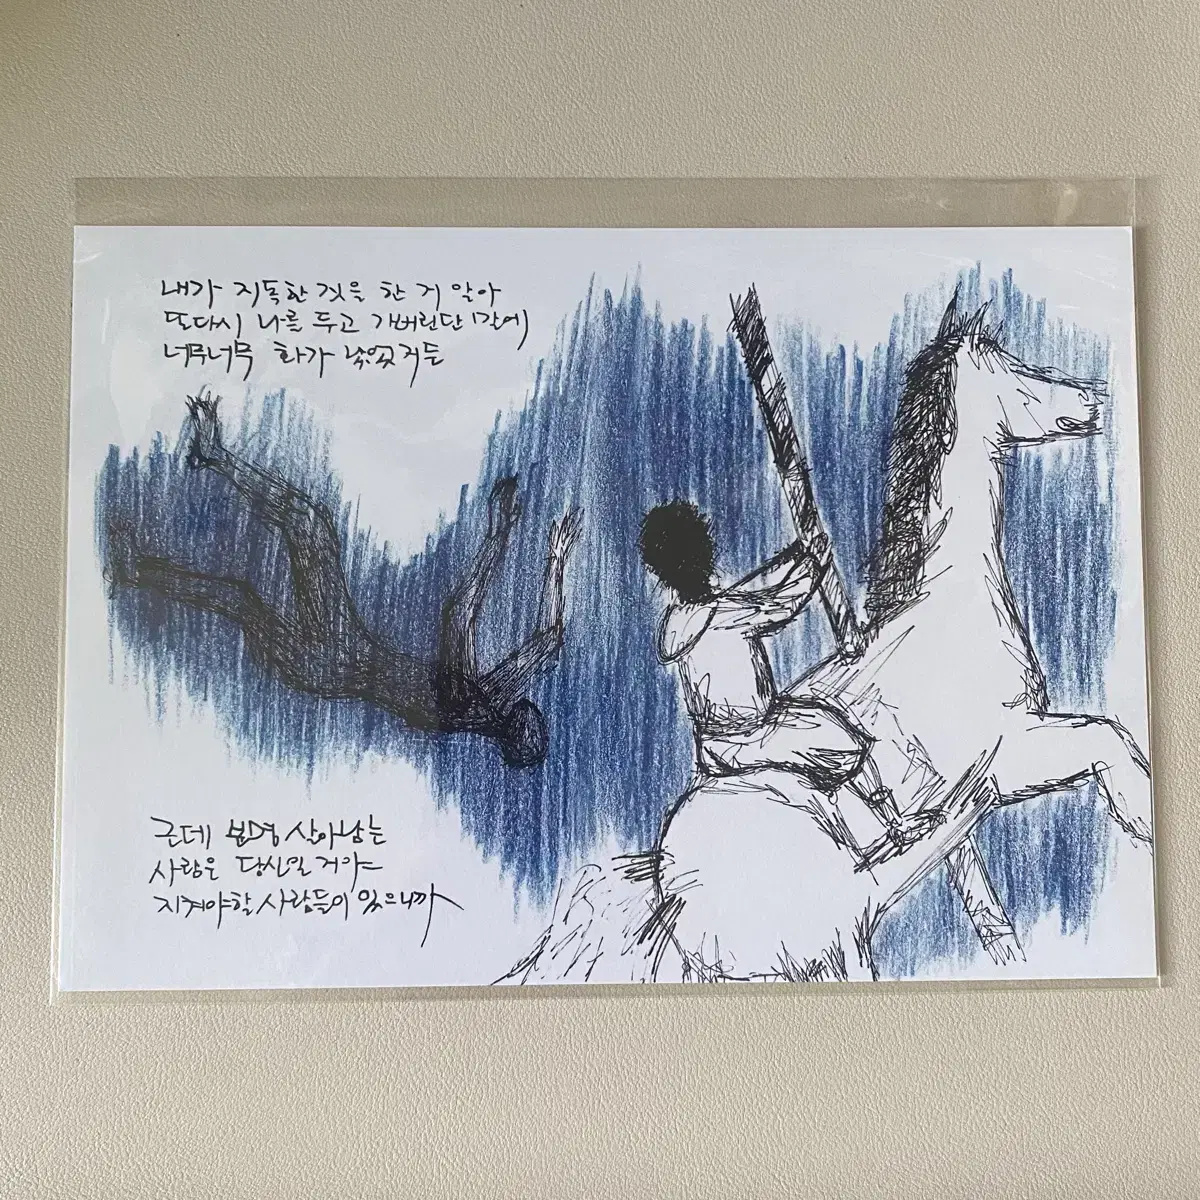 내가 지독한 것을 한 거 알아
또다시 나를 두고 가버린단 말에
너무너무 화가 났었거든
근데 분명 살아남는
사람은 당신일 거야
지켜야할 사람들이 있으니까